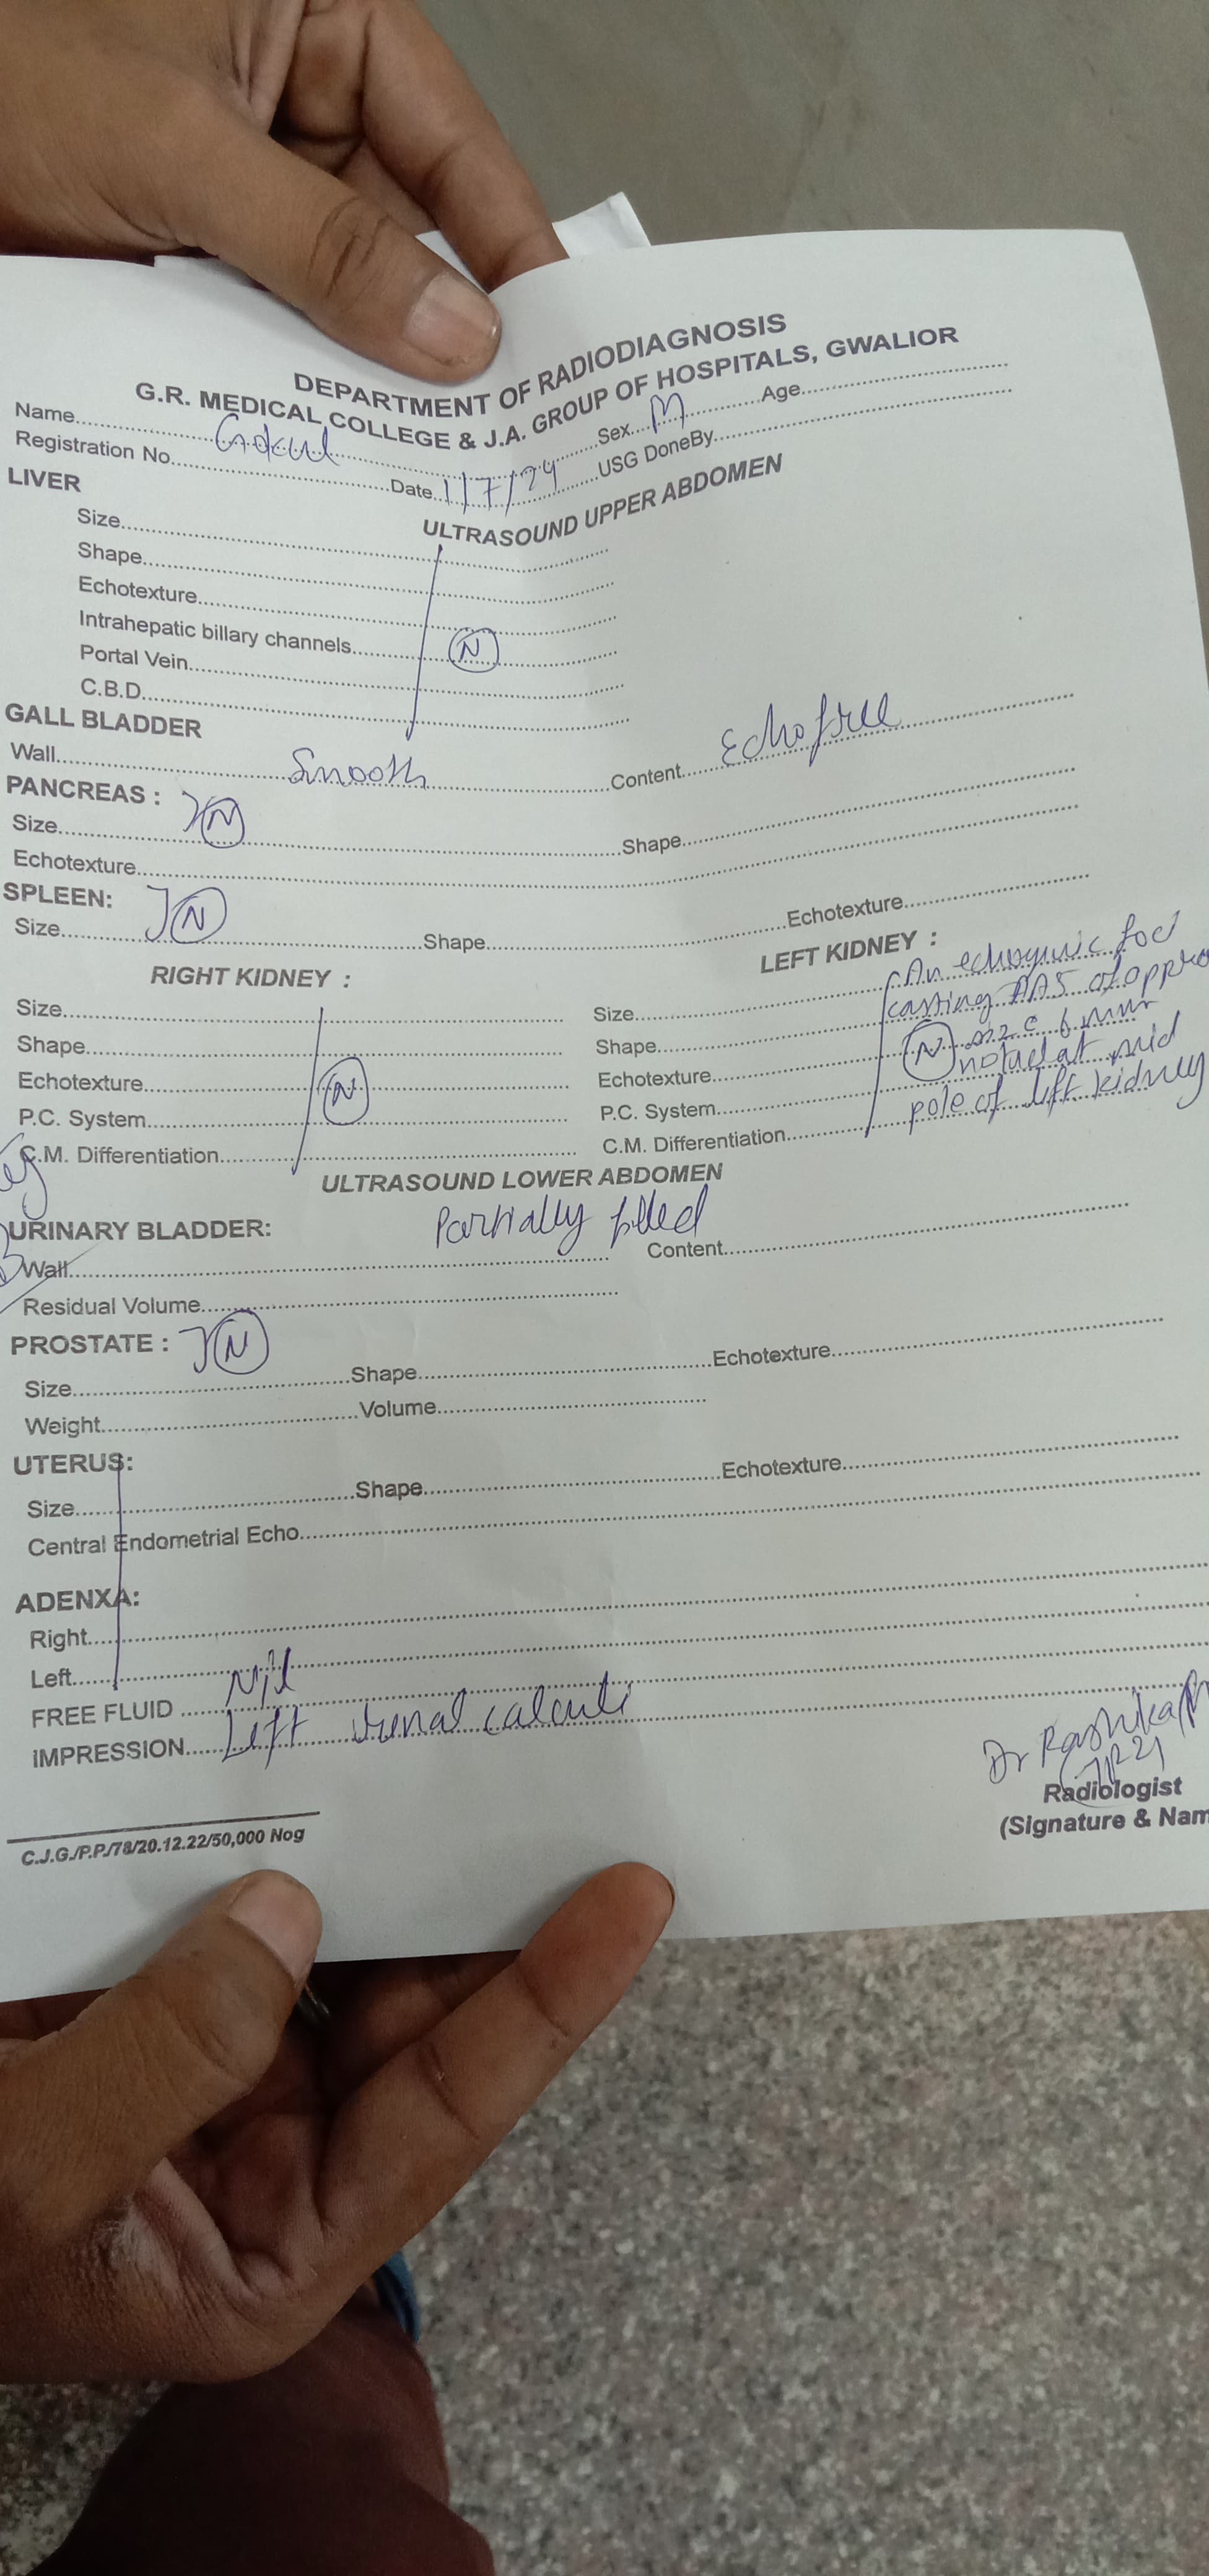 DEPARTMENT OF RADIODIAGNOSIS
G.R. MEDICAL COLLEGE & J.A. GROUP OF HOSPITALS, GWALIOR
Name.....Gokul.....Sex...M.....Age.....
Registration No.....Date...1/7/24.....USG DoneBy.....
ULTRASOUND UPPER ABDOMEN
LIVER
Size.....
Shape.....
Echotexture.....
Intrahepatic billary channels..... N
Portal Vein.....
C.B.D.....
GALL BLADDER
Wall.....Smooth.....Content.....Echofree
PANCREAS : N
Size.....Shape.....
Echotexture.....
SPLEEN: N
Size.....Shape.....Echotexture.....
RIGHT KIDNEY :
Size.....
Shape.....
Echotexture..... N
P.C. System.....
C.M. Differentiation.....
LEFT KIDNEY :
Size.....An echogenic foci
Shape.....casting of appro
Echotexture..... N size 6 mm
P.C. System.....noted at mid
C.M. Differentiation.....pole of left kidney
ULTRASOUND LOWER ABDOMEN
URINARY BLADDER: Partially filled
Wall.....Content.....
Residual Volume.....
PROSTATE : N
Size.....Shape.....Echotexture.....
Weight.....Volume.....
UTERUS:
Size.....Shape.....Echotexture.....
Central Endometrial Echo.....
ADENXA:
Right.....
Left.....
FREE FLUID.....Nil
IMPRESSION.....Left renal calculi
Dr Rashika
Radiologist
(Signature & Nam
C.J.G./P.P./78/20.12.22/50,000 Nog